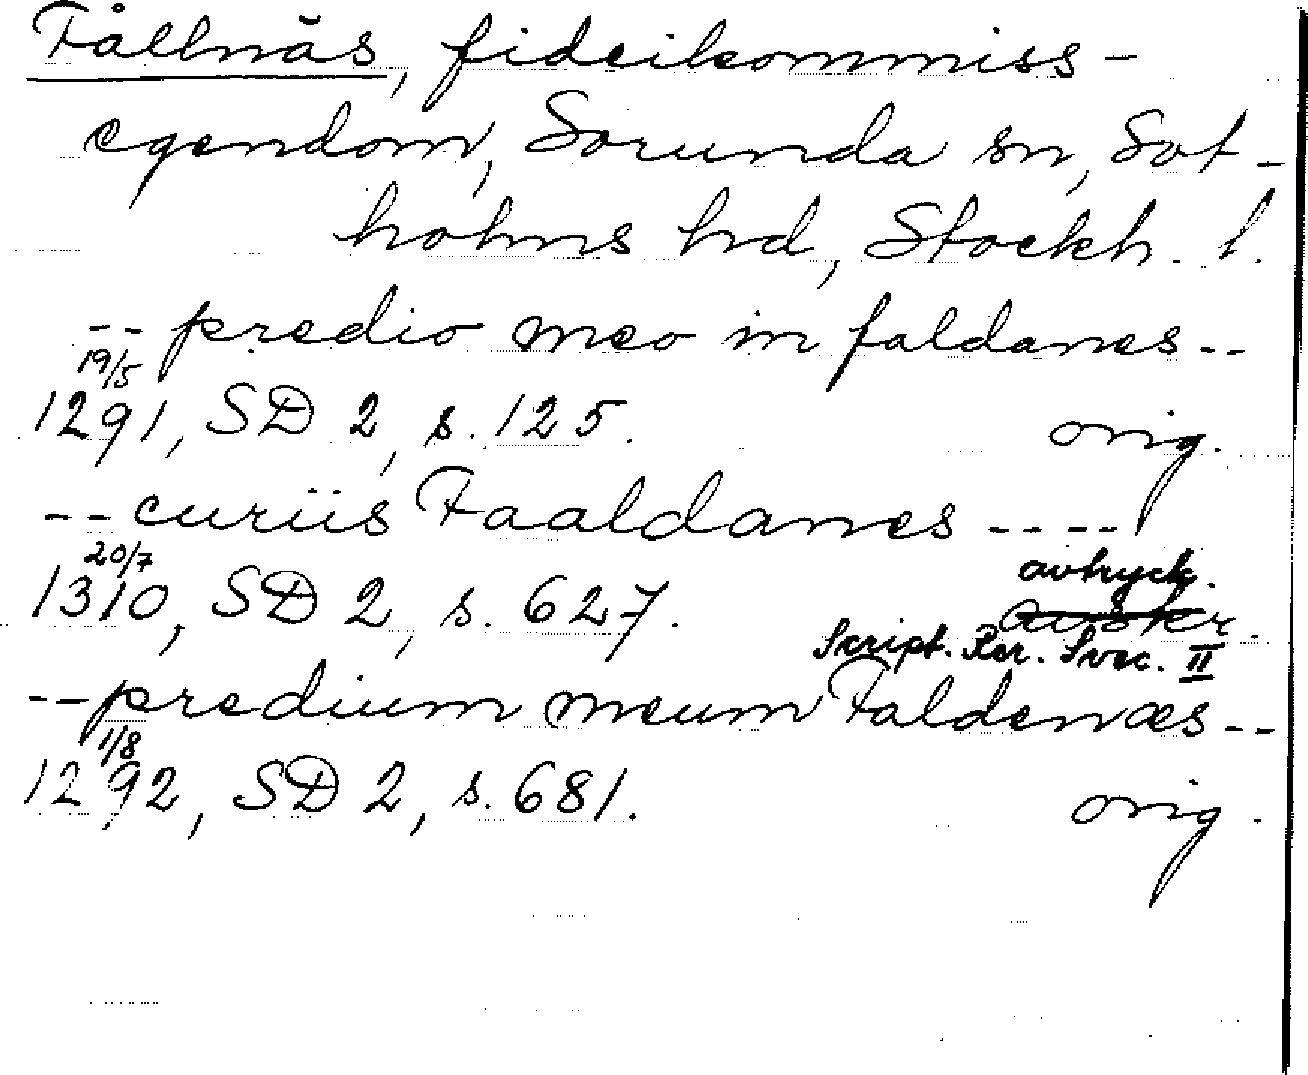 Fållnäs, fideikommiss-
egendom, Sorunda sn, Sot-
holms hd, Stockh. l.
-- predio meo in faldanes --
19/5
1291, SD 2, s. 125. orig.
-- curiis Faaldanes ----
20/7
avtryck.
1310, SD 2, s. 627. avskr.
Script. Rer. Svec. II
-- predium meum Faldenæs --
1/8
1292, SD 2, s. 681. orig.